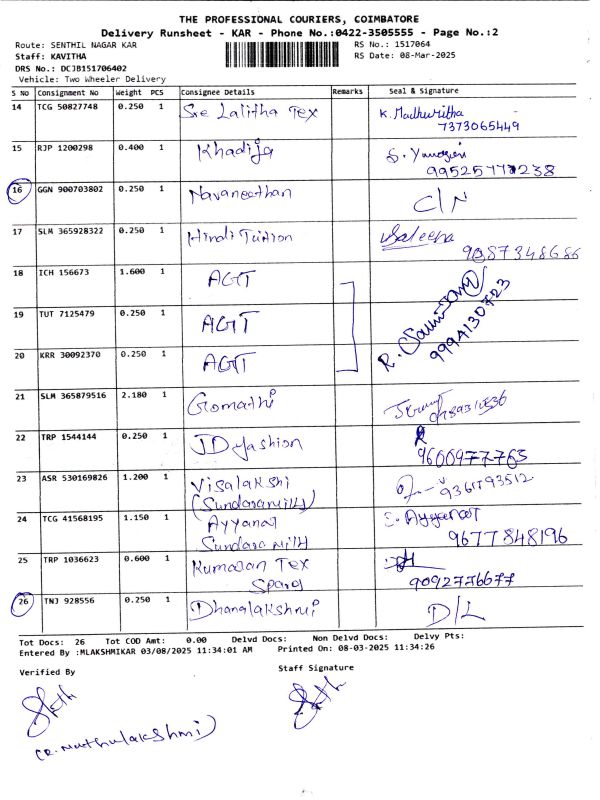 THE PROFESSIONAL COURIERS, COIMBATORE
Delivery Runsheet - KAR - Phone No.:0422-3505555 - Page No.:2
Route: SENTHIL NAGAR KAR
RS No.: 1517064
Staff: KAVITHA
RS Date: 08-Mar-2025
DRS No.: DCJB151706402
Vehicle: Two Wheeler Delivery
S No Consignment No Weight PCS Consignee Details Remarks Seal & Signature
14 TCG 50827748 0.250 1 Sre Lalitha Tex K. Madhuritha
7373065449
15 RJP 1200298 0.400 1 Khadija
16 GGN 900703802 0.250 1 Navaneethan C/N
17 SLM 365928322 0.250 1 Hindi Tuition Saleena
9087348686
18 ICH 156673 1.600 1 AGT
19 TUT 7125479 0.250 1 AGIT
20 KRR 30092370 0.250 1 AGT
9994130723
21 SLM 365879516 2.180 1 Gomathi
22 TRP 1544144 0.250 1 JD fashion
9600977763
23 ASR 530169826 1.200 1 Visalakshi
(Sundaramills)
9361793512
24 TCG 41568195 1.150 1 Ayyanar
Sundara Mills
9677848196
25 TRP 1036623 0.600 1 Kumaran Tex
Spares
9092776677
26 TNJ 928556 0.250 1 Dhanalakshmi D/L
Tot Docs: 26 Tot COD Amt: 0.00 Delvd Docs: Non Delvd Docs: Delvy Pts:
Entered By :MLAKSHMIKAR 03/08/2025 11:34:01 AM Printed On: 08-03-2025 11:34:26
Verified By
Staff Signature
(R. Muthulakshmi)